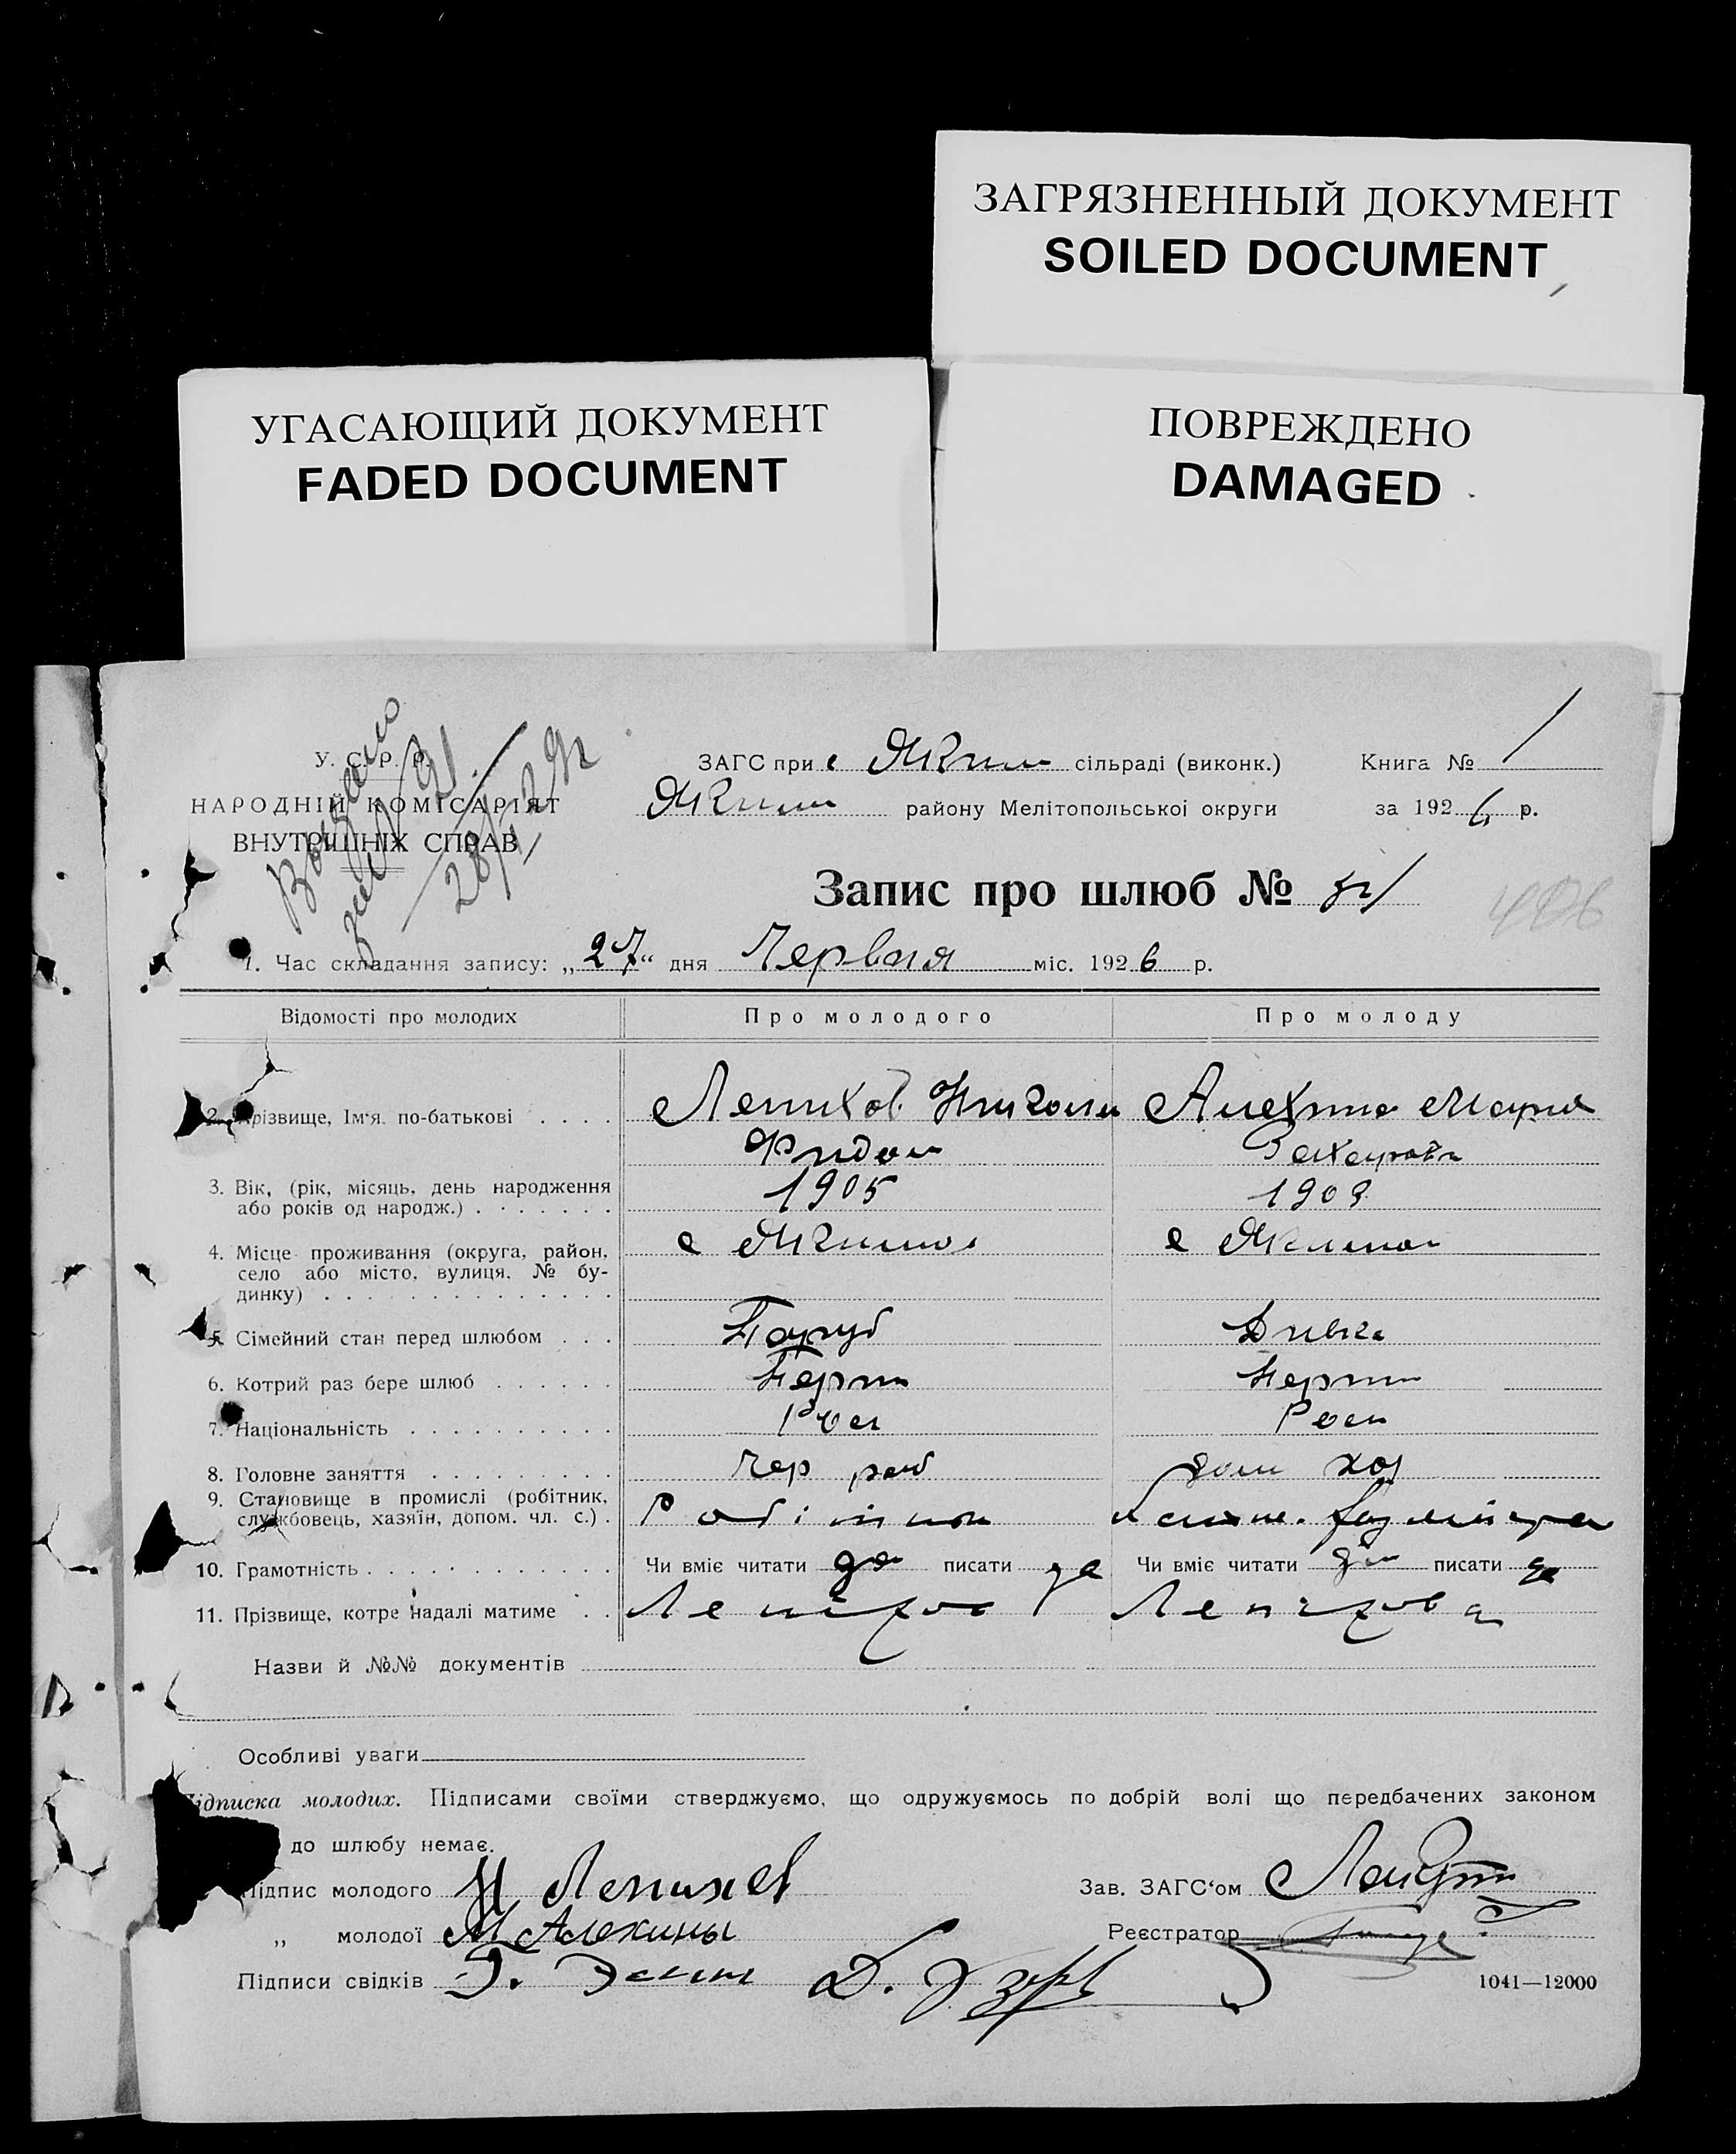 ЗАГРЯЗНЕННЫЙ ДОКУМЕНТ
SOILED DOCUMENT
УГАСАЮЩИЙ ДОКУМЕНТ
FADED DOCUMENT
ПОВРЕЖДЕНО
DAMAGED
У. С. Р. Р.
НАРОДНІЙ КОМІСАРІЯТ
ВНУТРІШНІХ СПРАВ
ЗАГС при с Яким сільраді (виконк.)
Книга № 1
Яким району Мелітопольської округи
за 1926 р.
Запис про шлюб №
406
1. Час складання запису: „27“ дня Червня міс. 1926 р.
Відомості про молодих Про молодого Про молоду
2. Прізвище, Ім‘я. по-батькові . . . . Лепихов Николай Алехина Мария
Захаровн
3. Вік, (рік, місяць, день народження 1905 1903
або років од народж.) . . . . . . .
4. Місце проживання (округа, район, с Якимов с Якимов
село або місто, вулиця, № бу-
динку) . . . . . . . . . . . . . .
5. Сімейний стан перед шлюбом . . . Паруб Дивка
6. Котрий раз бере шлюб . . . . . . Перши Перши
7. Національність . . . . . . . . . . Рос Рос
8. Головне заняття . . . . . . . . . Чер раб дом хоз
9. Становище в промислі (робітник, Робітник
службовець, хазяїн, допом. чл. с.) .
10. Грамотність . . . . . . . . . . . . Чи вміє читати да писати да Чи вміє читати да писати да
11. Прізвище, котре надалі матиме . . Лепіхов Лепіхова
Назви й №№ документів
Особливі уваги
Підписка молодих. Підписами своїми стверджуємо, що одружуємось по добрій волі що передбачених законом
до шлюбу немає.
Підпис молодого Н Лепихов
Зав. ЗАГС‘ом
„ молодої М Алехины
Реєстратор
Підписи свідків
1041—12000